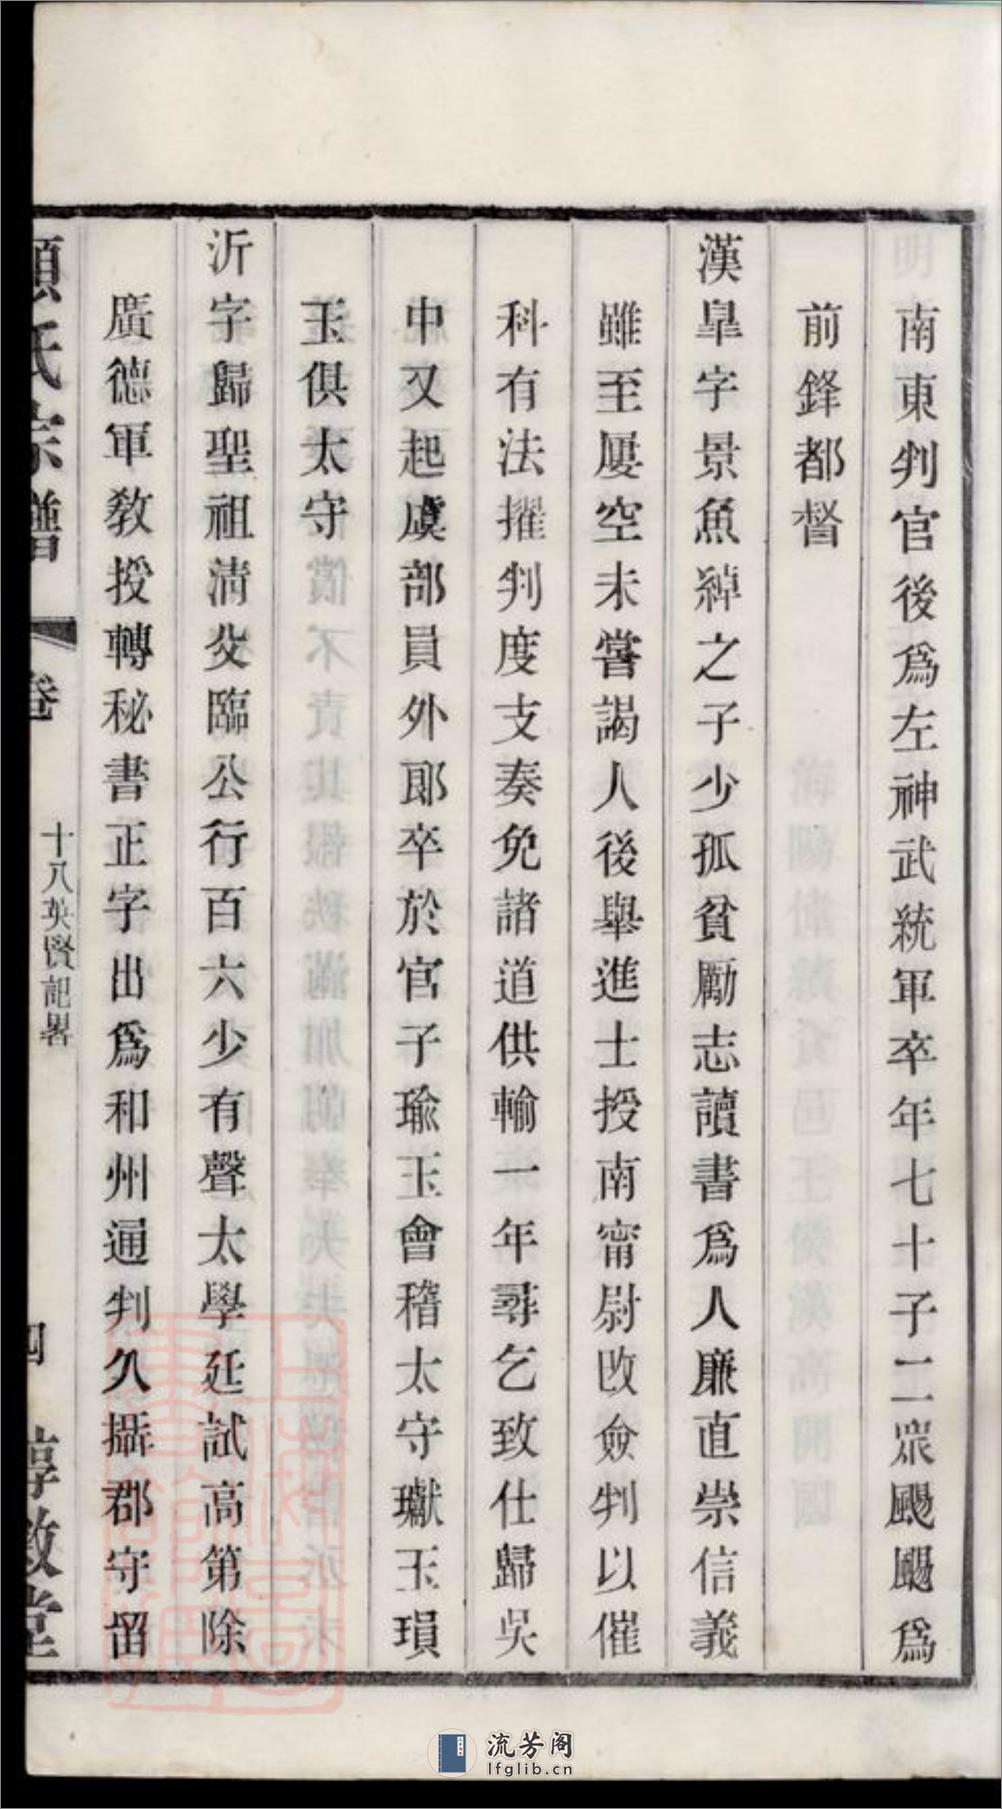 南東判官後爲左神武統軍卒年七十子二衆颺颺爲
前鋒都督
漢臯字景魚綽之子少孤貧勵志讀書爲人廉直崇信義
雖至屢空未嘗謁人後舉進士授南甯尉改僉判以催
科有法擢判度支奏免諸道供輸一年尋乞致仕歸吳
中又起虞部員外郎卒於官子瑜玉會稽太守瓛玉瑣
玉俱太守
沂字歸聖祖淸父臨公行百六少有聲太學延試高第除
廣德軍敎授轉秘書正字出爲和州通判久攝郡守留
氏宗譜
卷
十八英賢記畧
四
敦堂
流芳阁
lfglib.cn